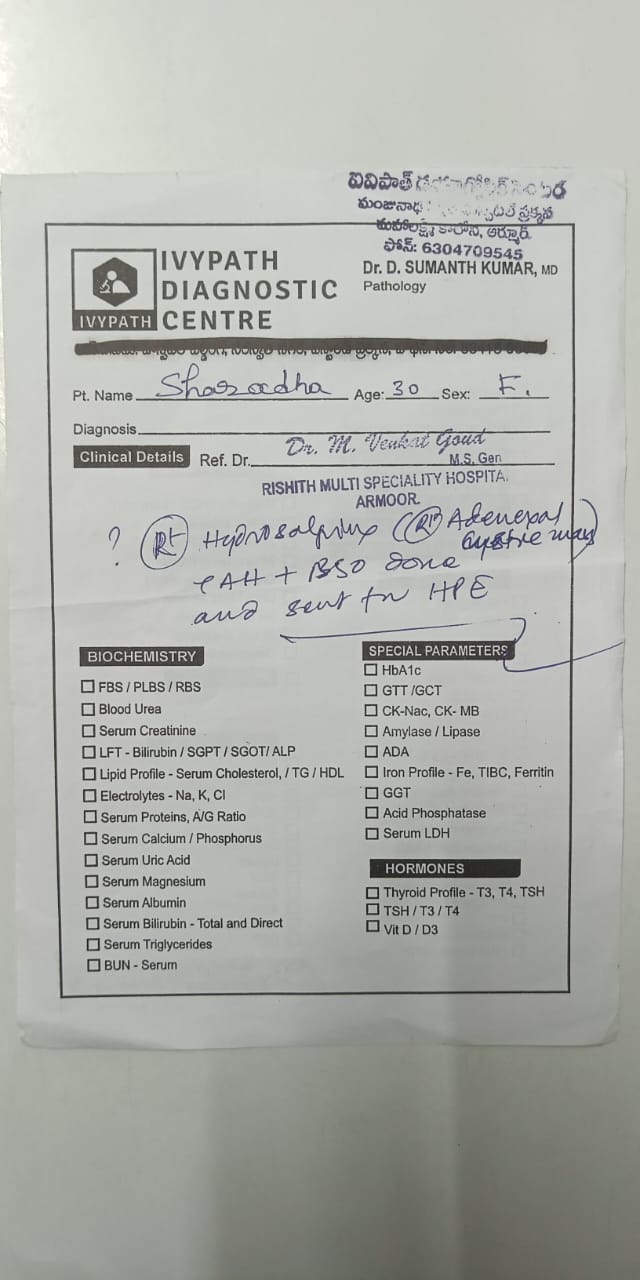 ఐవిపాత్ డయాగ్నోస్టిక్ సెంటర
మంజునాథ ప్రక్కన
మహాలక్ష్మి కాలోని, ఆర్మూర్.
ఫోన్: 6304709545
IVYPATH
DIAGNOSTIC
CENTRE
IVYPATH
Dr. D. SUMANTH KUMAR, MD
Pathology
Pt. Name Sharadha Age: 30 Sex: F.
Diagnosis
Clinical Details Ref. Dr. Dr. M. Venkat Goud
M.S. Gen
RISHITH MULTI SPECIALITY HOSPITA
ARMOOR
? Rt Hydrosalpinx (Rt Adenexal
cystic mass)
TAH + BSO done
and sent for HPE
BIOCHEMISTRY
FBS / PLBS / RBS
Blood Urea
Serum Creatinine
LFT - Bilirubin / SGPT / SGOT/ ALP
Lipid Profile - Serum Cholesterol, / TG / HDL
Electrolytes - Na, K, Cl
Serum Proteins, A/G Ratio
Serum Calcium / Phosphorus
Serum Uric Acid
Serum Magnesium
Serum Albumin
Serum Bilirubin - Total and Direct
Serum Triglycerides
BUN - Serum
SPECIAL PARAMETERS
HbA1c
GTT /GCT
CK-Nac, CK- MB
Amylase / Lipase
ADA
Iron Profile - Fe, TIBC, Ferritin
GGT
Acid Phosphatase
Serum LDH
HORMONES
Thyroid Profile - T3, T4, TSH
TSH / T3 / T4
Vit D / D3